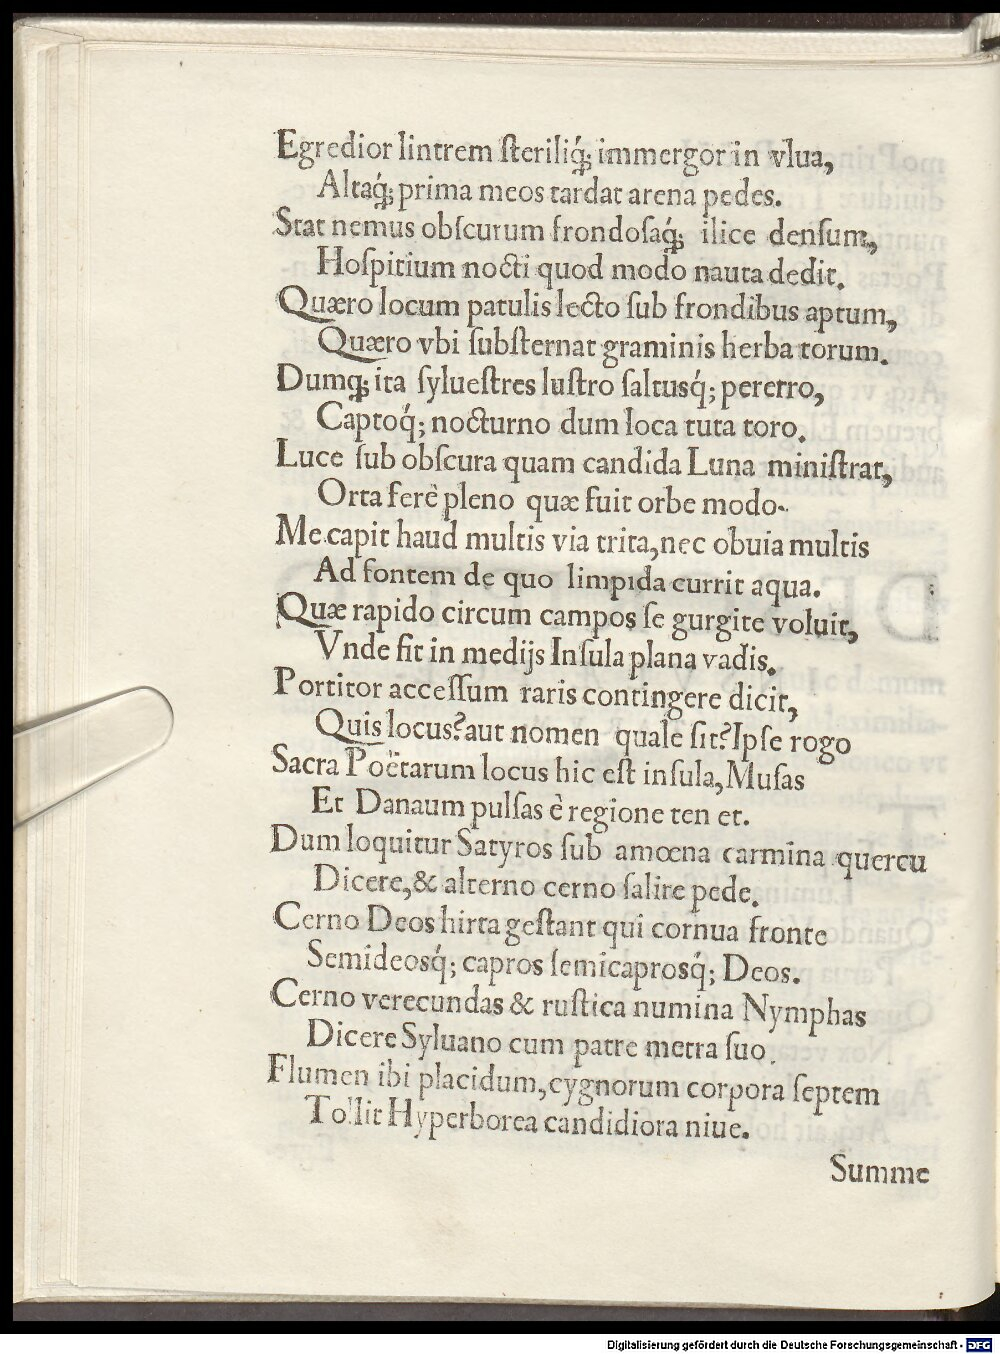 Egredior lintrem ſteriliq́; immergor in vlua,
Altaq́; prima meos tardat arena pedes.
Stat nemus obſcurum frondoſaq́; ilice denſum,
Hoſpitium nocti quod modo nauta dedit.
Quæro locum patulis lecto ſub frondibus aptum,
Quæro vbi ſubſternat graminis herba torum.
Dumq; ita ſylueſtres luſtro ſaltusq́; pererro,
Captoq́; nocturno dum loca tuta toro.
Luce ſub obſcura quam candida Luna miniſtrat,
Orta ferè pleno quæ fuit orbe modo.
Me capit haud multis via trita, nec obuia multis
Ad fontem de quo limpida currit aqua.
Quæ rapido circum campos ſe gurgite voluit,
Vnde fit in medijs Inſula plana vadis.
Portitor acceſſum raris contingere dicit,
Quis locus? aut nomen quale ſit? Ipſe rogo
Sacra Poëtarum locus hic eſt inſula, Muſas
Et Danaum pulſas è regione ten et.
Dum loquitur Satyros ſub amœna carmina quercu
Dicere, & alterno cerno ſalire pede.
Cerno Deos hirta geſtant qui cornua fronte
Semideosq́; capros ſemicaprosq́; Deos.
Cerno verecundas & ruſtica numina Nymphas
Dicere Syluano cum patre metra ſuo.
Flumen ibi placidum, cygnorum corpora ſeptem
Tollit Hyperborea candidiora niue.
Summe
Digitalisierung gefördert durch die Deutsche Forschungsgemeinschaft - DFG